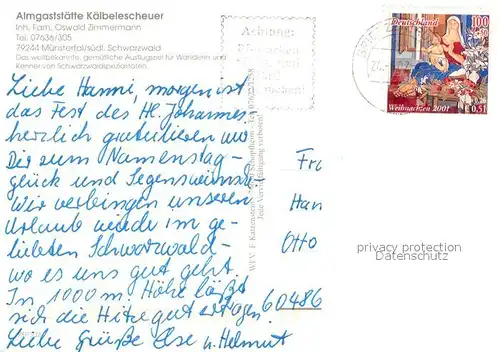 Almgaststätte Kälbelescheuer
Inh. Fam. Oswald Zimmermann
Tel. 07636/305
79244 Münstertal/südl. Schwarzwald
Das weitbekannte, gemütliche Ausflugsziel für Wanderer und
Kenner von Schwarzwaldspezialitäten.
Liebe Hanni, morgen ist
das Fest des Hl. Johannes
herzlich gratulieren wir
Dir zum Namenstag-
glück und Segenswünsche
Wir verbringen unseren
Urlaub wieder im ge-
liebten Schwarzwald-
wo es uns gut geht.
In 1000 m. Höhe läßt
sich die Hitze gut ertragen
Liebe Grüße Else u. Helmut
Achtung:
Jede Vervielfältigung verboten!
Deutschland
100
Weihnachten 2001
€ 0,51
Fr
Han
Otto
60486
privacy protection
Datenschutz